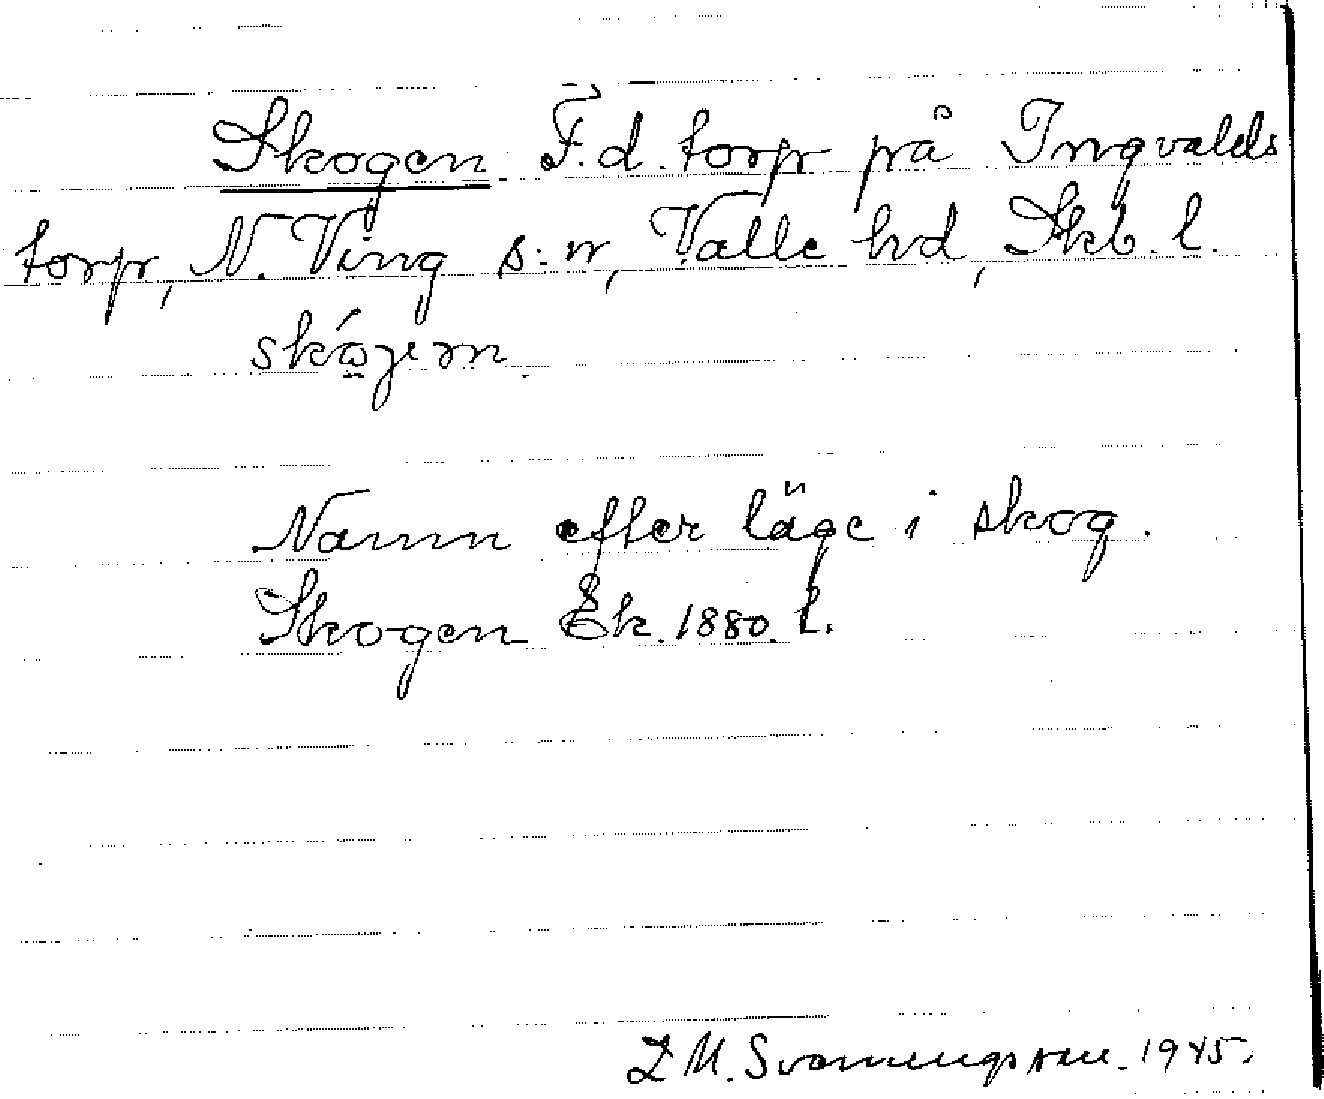 Skogen F.d. torp på Ingvalds
torp, N. Ving s:n, Valle hd, Skb. l.
skógen
Namn efter läge i skog.
Skogen Ek. 1880. l.
1945.